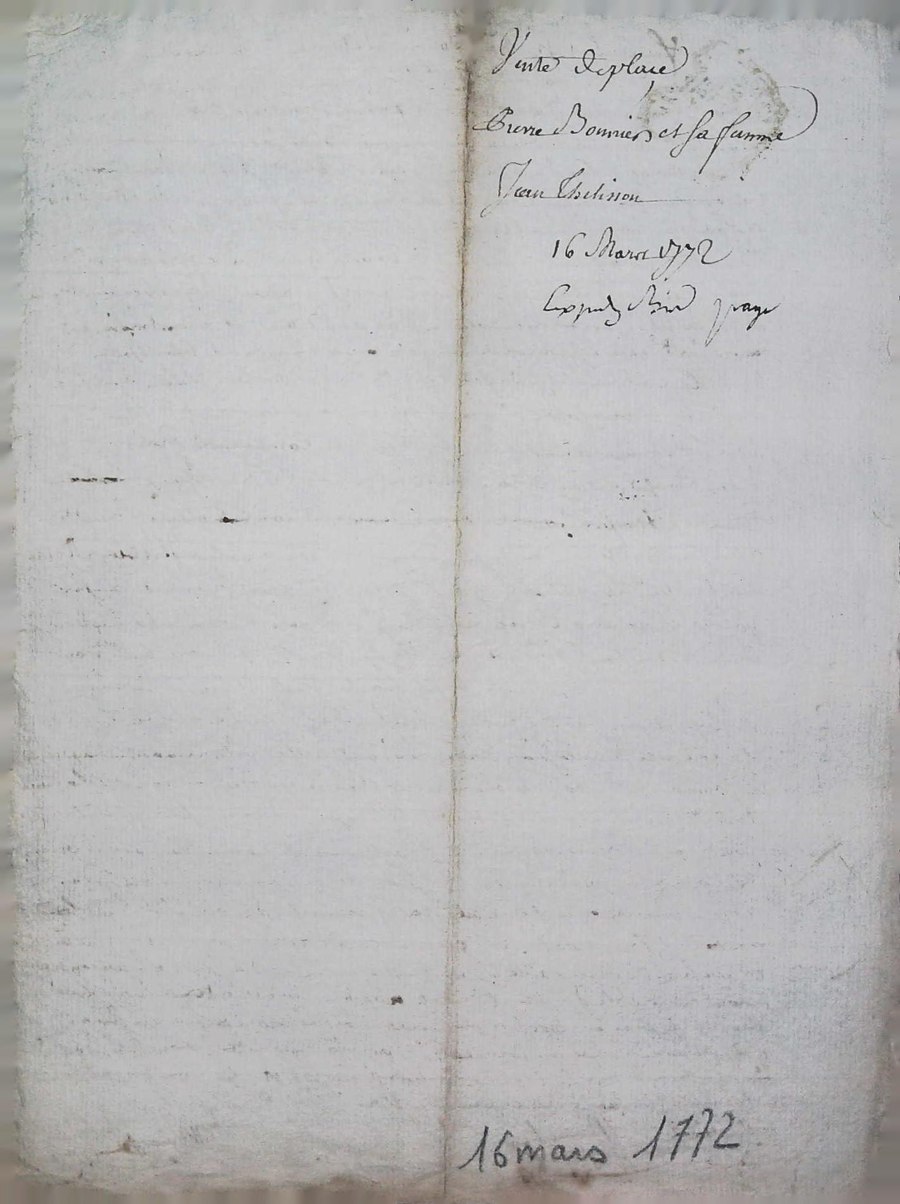 Vente de place
Pierre Bonnier et sa famme
Jean Thelisson
16 Mars 1772
16 mars 1772